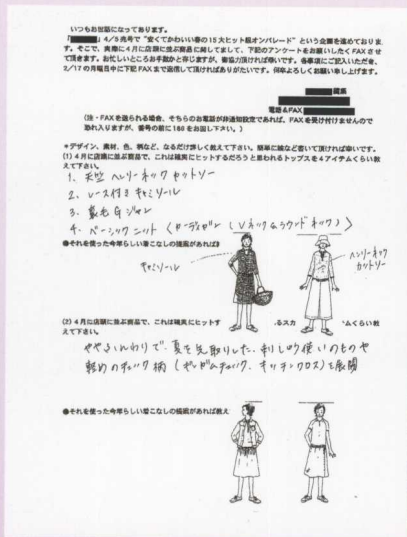 いつもお世話になっております。
「　」4/5売号で"安くてかわいい春の15大ヒット服オンパレード"という企画を進めておりま
す。そこで、実際に4月に店頭に並ぶ商品に関してまして、下記のアンケートをお願いしたくFAXさせ
て頂きます。お忙しいところお手数かと存じますが、御協力頂ければ幸いです。各事項にご記入いただき、
2/17の月曜日中に下記FAXまで返信して頂ければありがたいです。何卒よろしくお願い申し上げます。
編集
電話&FAX
(注・FAXを送られる場合、そちらのお電話が非通知設定であれば、FAXを受け付けませんので
恐れ入りますが、番号の前に186をお回し下さい。)
*デザイン、素材、色、柄など、なるだけ詳しく教えて下さい。簡単に絵など書いて頂ければ幸いです。
(1)4月に店頭に並ぶ商品で、これは確実にヒットするだろうと思われるトップスを4アイテムくらい教
えて下さい。
1、天竺 ヘンリーネック カットソー
2、レース付き キャミソール
3、裏毛Gジャン
4、ベーシックニット (カーディガン (Vネック&ラウンドネック))
●それを使った今年らしい着こなしの描画があれば教
キャミソール
ヘンリーネック
カットソー
(2)4月に店頭に並ぶ商品で、これは確実にヒットす
るスカ
ムくらい教
えて下さい。
ややふんわりで、夏を先取りした、刺しゅう使いのものや
軽めのチェック柄 (ギンガムチェック、キッチンクロス)を展開
●それを使った今年らしい着こなしの描画があれば教え